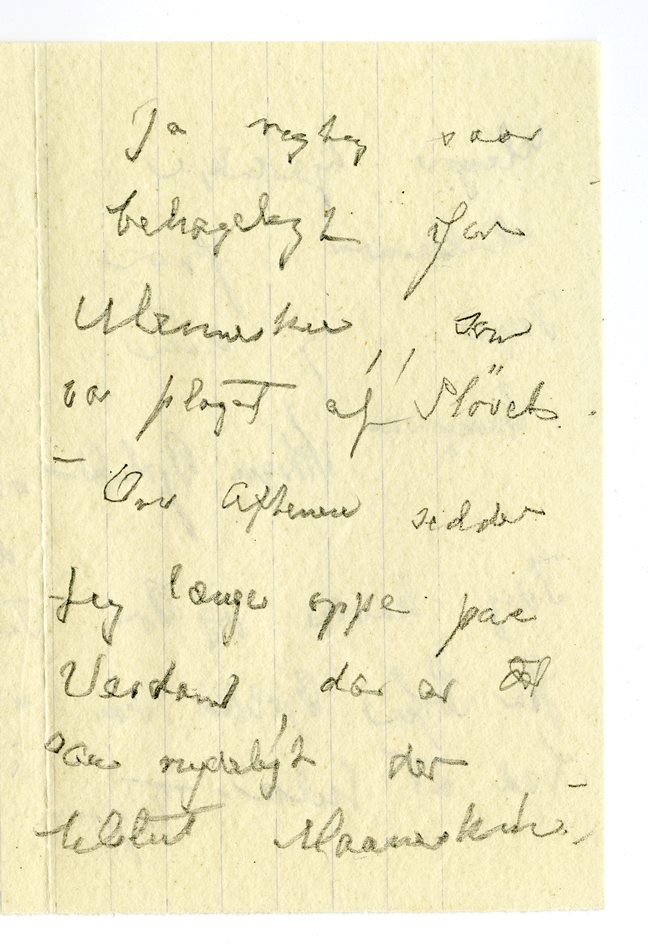 Ja rigtig saa
behageligt for
Mennesker som
var plaget af Støvet.
– Om Aftenen sidder
Jeg længe oppe paa
Verdens, der er
saa nydeligt der
tilslut Maaneskin,